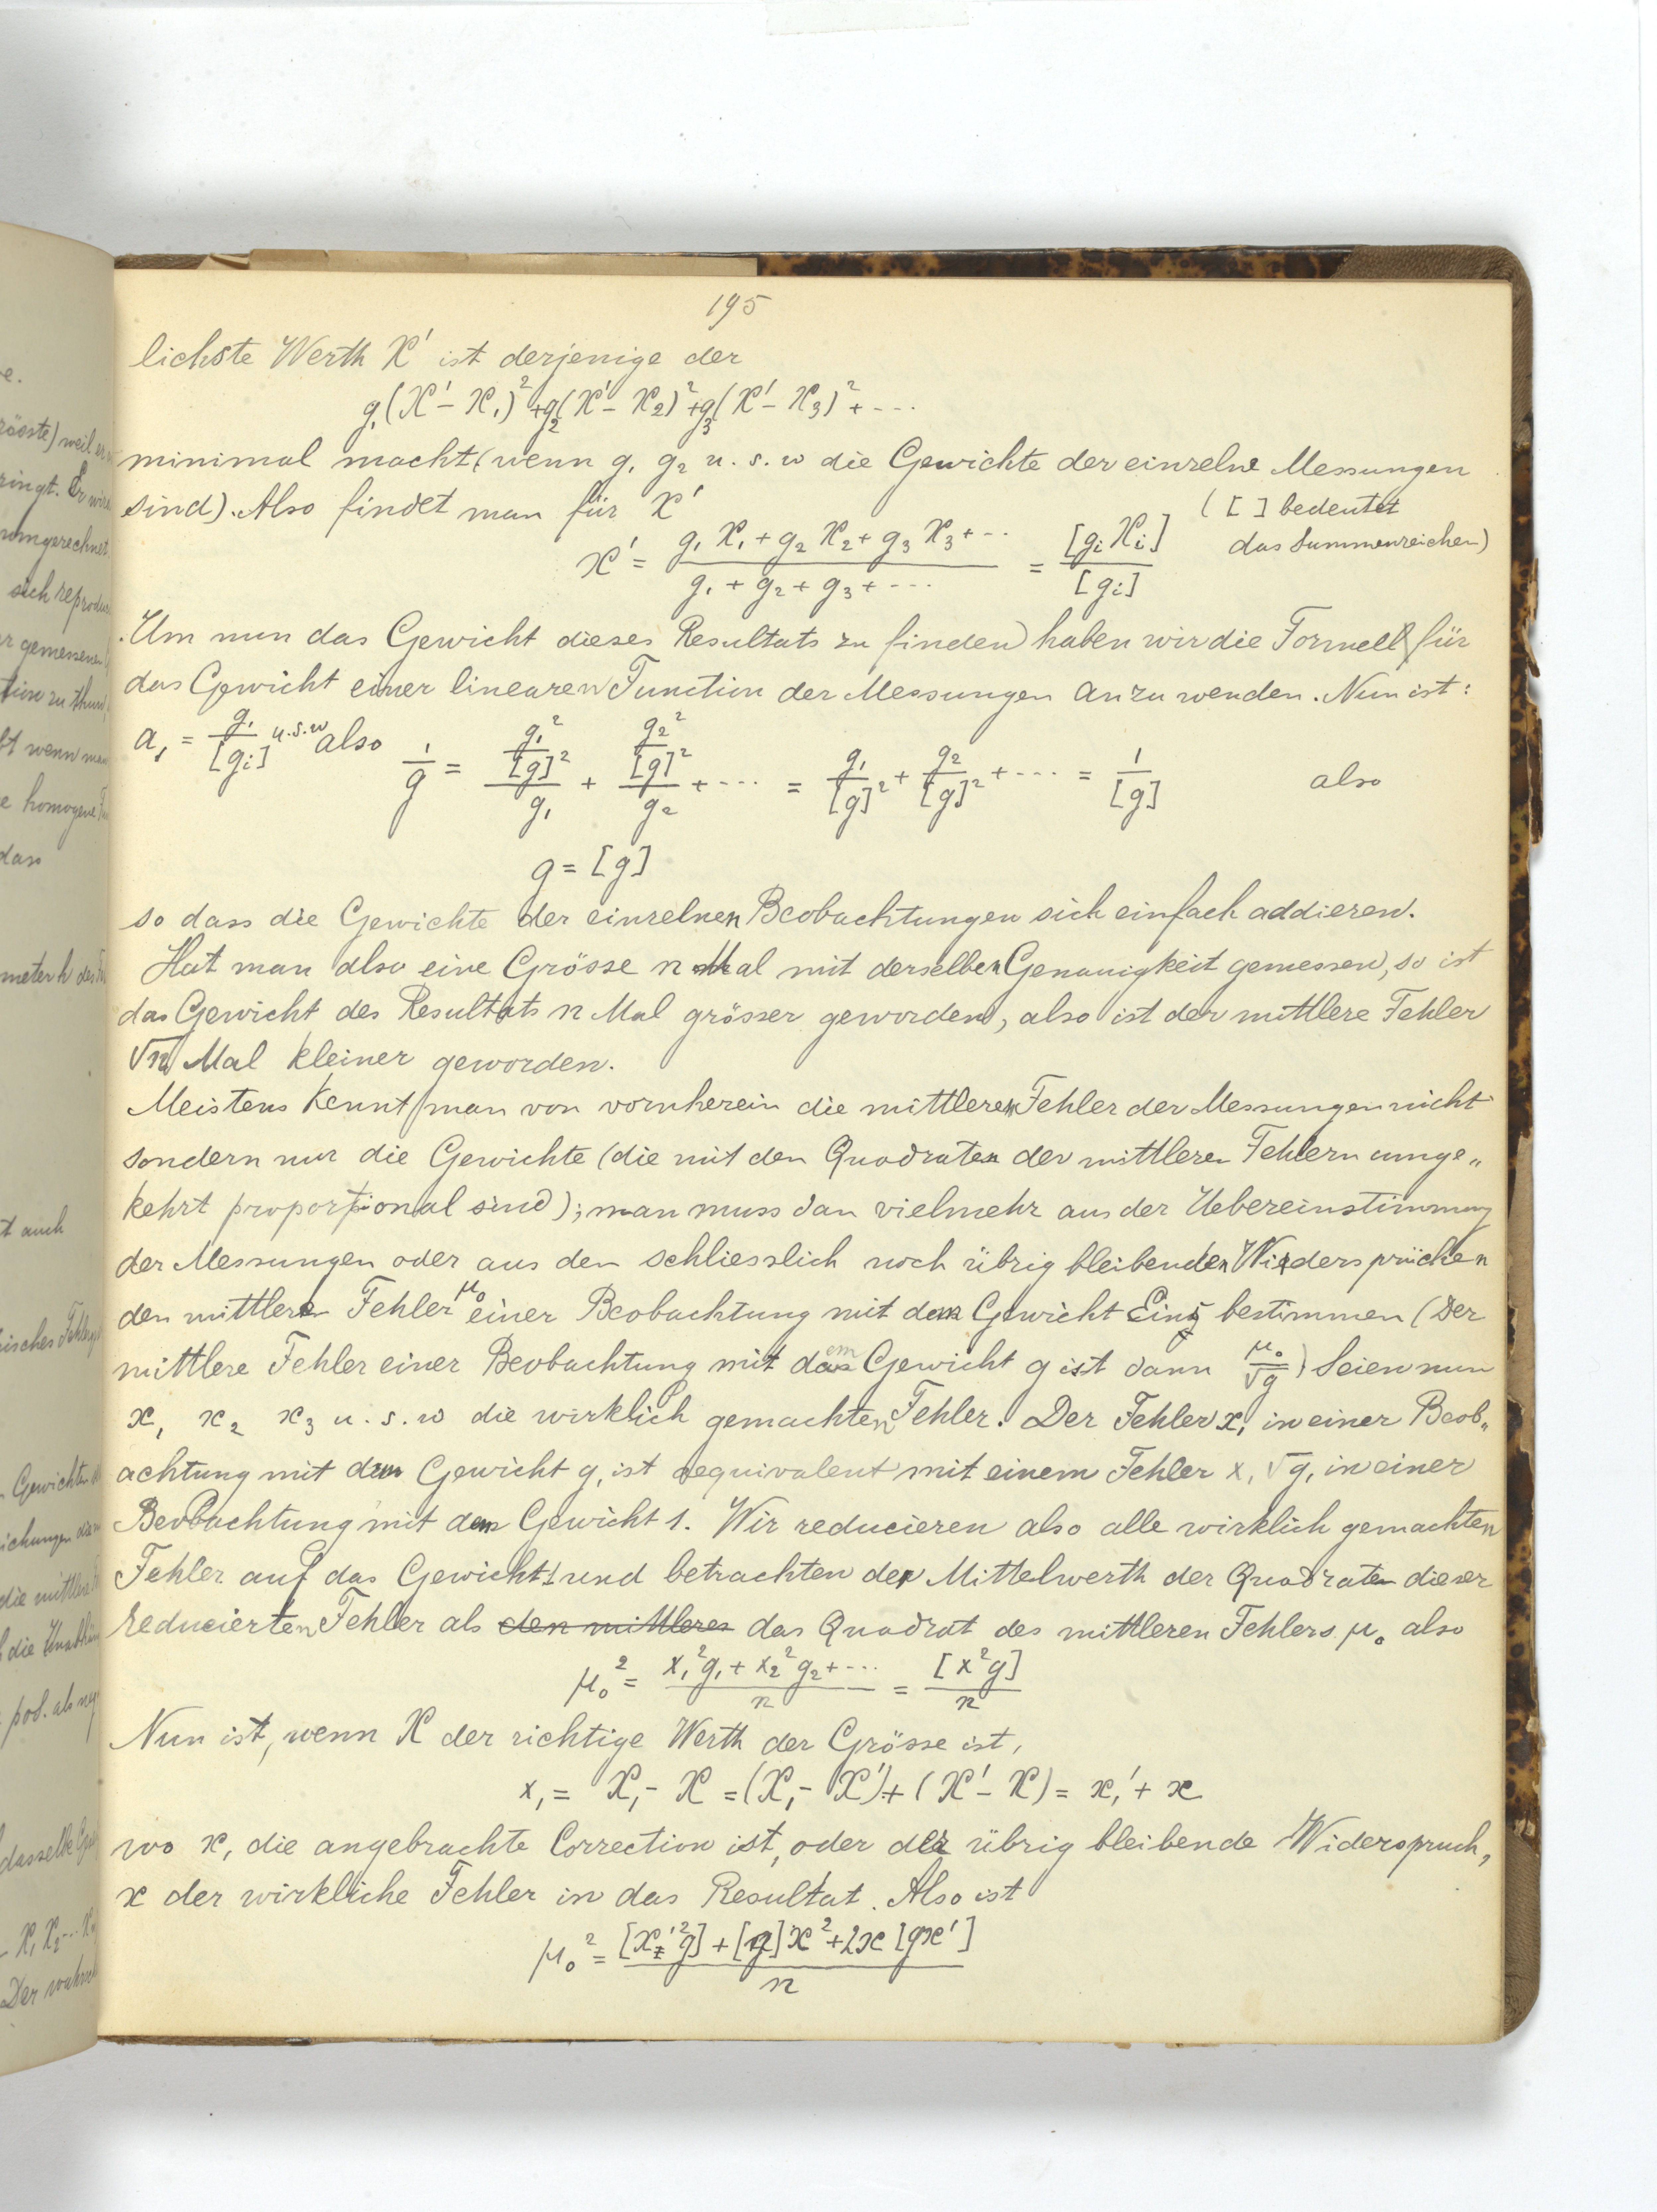 195
lichste Werth X' ist derjenige der
g₁(X' - X₁)² + g₂(X' - X₂)² + g₃(X' - X₃)² + ...
minimal macht (wenn g₁ g₂ u. s. w die Gewichte der einzelne Messungen
sind). Also findet man für X'
([ ] bedeutet
das Summenzeichen)
X' = (g₁X₁ + g₂X₂ + g₃X₃ + ...)/(g₁ + g₂ + g₃ + ...) = [gᵢXᵢ]/[gᵢ]
Um nun das Gewicht dieses Resultats zu finden haben wir die Formel für
das Gewicht einer linearen Function der Messungen anzuwenden. Nun ist:
a₁ = g₁/[gᵢ] u.s.w also 1/g = (g₁²/[g]²)/g₁ + (g₂²/[g]²)/g₂ + ... = g₁/[g]² + g₂/[g]² + ... = 1/[g] also
g = [g]
so dass die Gewichte der einzelnen Beobachtungen sich einfach addieren.
Hat man also eine Grösse n Mal mit derselben Genauigkeit gemessen, so ist
das Gewicht des Resultats n Mal grösser geworden, also ist der mittlere Fehler
√n Mal kleiner geworden.
Meistens kennt man von vornherein die mittleren Fehler der Messungen nicht
sondern nur die Gewichte (die mit den Quadraten der mittleren Fehlern umge„
kehrt proportional sind); man muss dan vielmehr aus der Uebereinstimmung
der Messungen oder aus den schliesslich noch übrig bleibenden Widersprüchen
den mittleren Fehler μ₀ einer Beobachtung mit dem Gewicht Eins bestimmen (Der
mittlere Fehler einer Beobachtung mit dem Gewicht g ist dann μ₀/√g) Seien nun
x₁ x₂ x₃ u. s. w die wirklich gemachten Fehler. Der Fehler x₁ in einer Beob„
achtung mit dem Gewicht g₁ ist aequivalent mit einem Fehler x₁√g₁ in einer
Beobachtung mit dem Gewicht 1. Wir reducieren also alle wirklich gemachten
Fehler auf das Gewicht 1 und betrachten den Mittelwerth der Quadraten dieser
reducierten Fehler als den mittleren das Quadrat des mittleren Fehlers μ₀ also
μ₀² = (x₁²g₁ + x₂²g₂ + ...)/n = [x²g]/n
Nun ist, wenn X der richtige Werth der Grösse ist,
x₁ = X₁ - X = (X₁ - X') + (X' - X) = x₁' + x
wo x₁ die angebrachte Correction ist, oder der übrig bleibende Widerspruch,
x der wirkliche Fehler in das Resultat. Also ist
μ₀² = ([x'²g] + [g]x² + 2x[gx'])/n